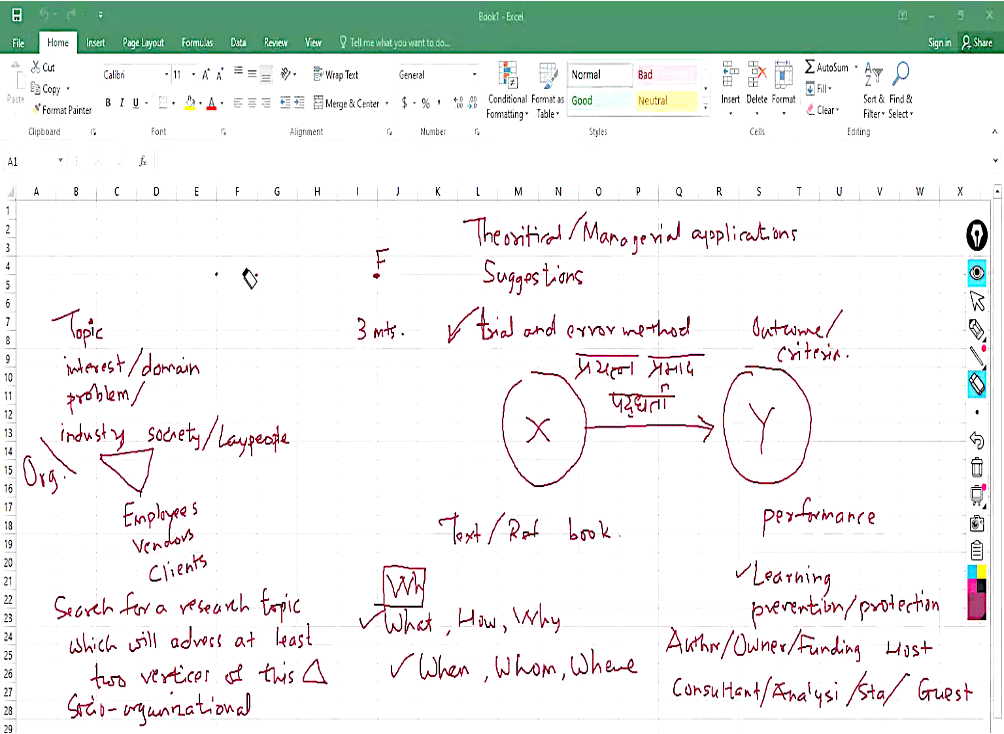 Book1 - Excel
File Home Insert Page Layout Formulas Data Review View Tell me what you want to do... Sign in Share
Paste Cut Copy Format Painter Clipboard
Calibri 11 B I U Font
Wrap Text Merge & Center Alignment
General $ % Number
Conditional Formatting Format as Table Normal Bad Good Neutral Styles
Insert Delete Format Cells
AutoSum Fill Clear Sort & Filter Find & Select Editing
A1 fx
A B C D E F G H I J K L M N O P Q R S T U V W X
1
2
3
4
5
6
7
8
9
10
11
12
13
14
15
16
17
18
19
20
21
22
23
24
25
26
27
28
29
Theoritical/Managerial applications
Suggestions
F
Topic
interest/domain
problem/
industry society/Laypeople
Org.
Employees
Vendors
Clients
Search for a research topic
which will adress at least
two vertices of this
Socio-organizational
3 mts.
trial and error method
प्रयत्न प्रमाद
पद्धती
X
Y
Outcome/
criteria.
Text/Ref book.
Wh
What, How, Why
When, Whom, Where
performance
Learning
prevention/protection
Author/Owner/Funding Host
Consultant/Analysi/Sta/ Guest